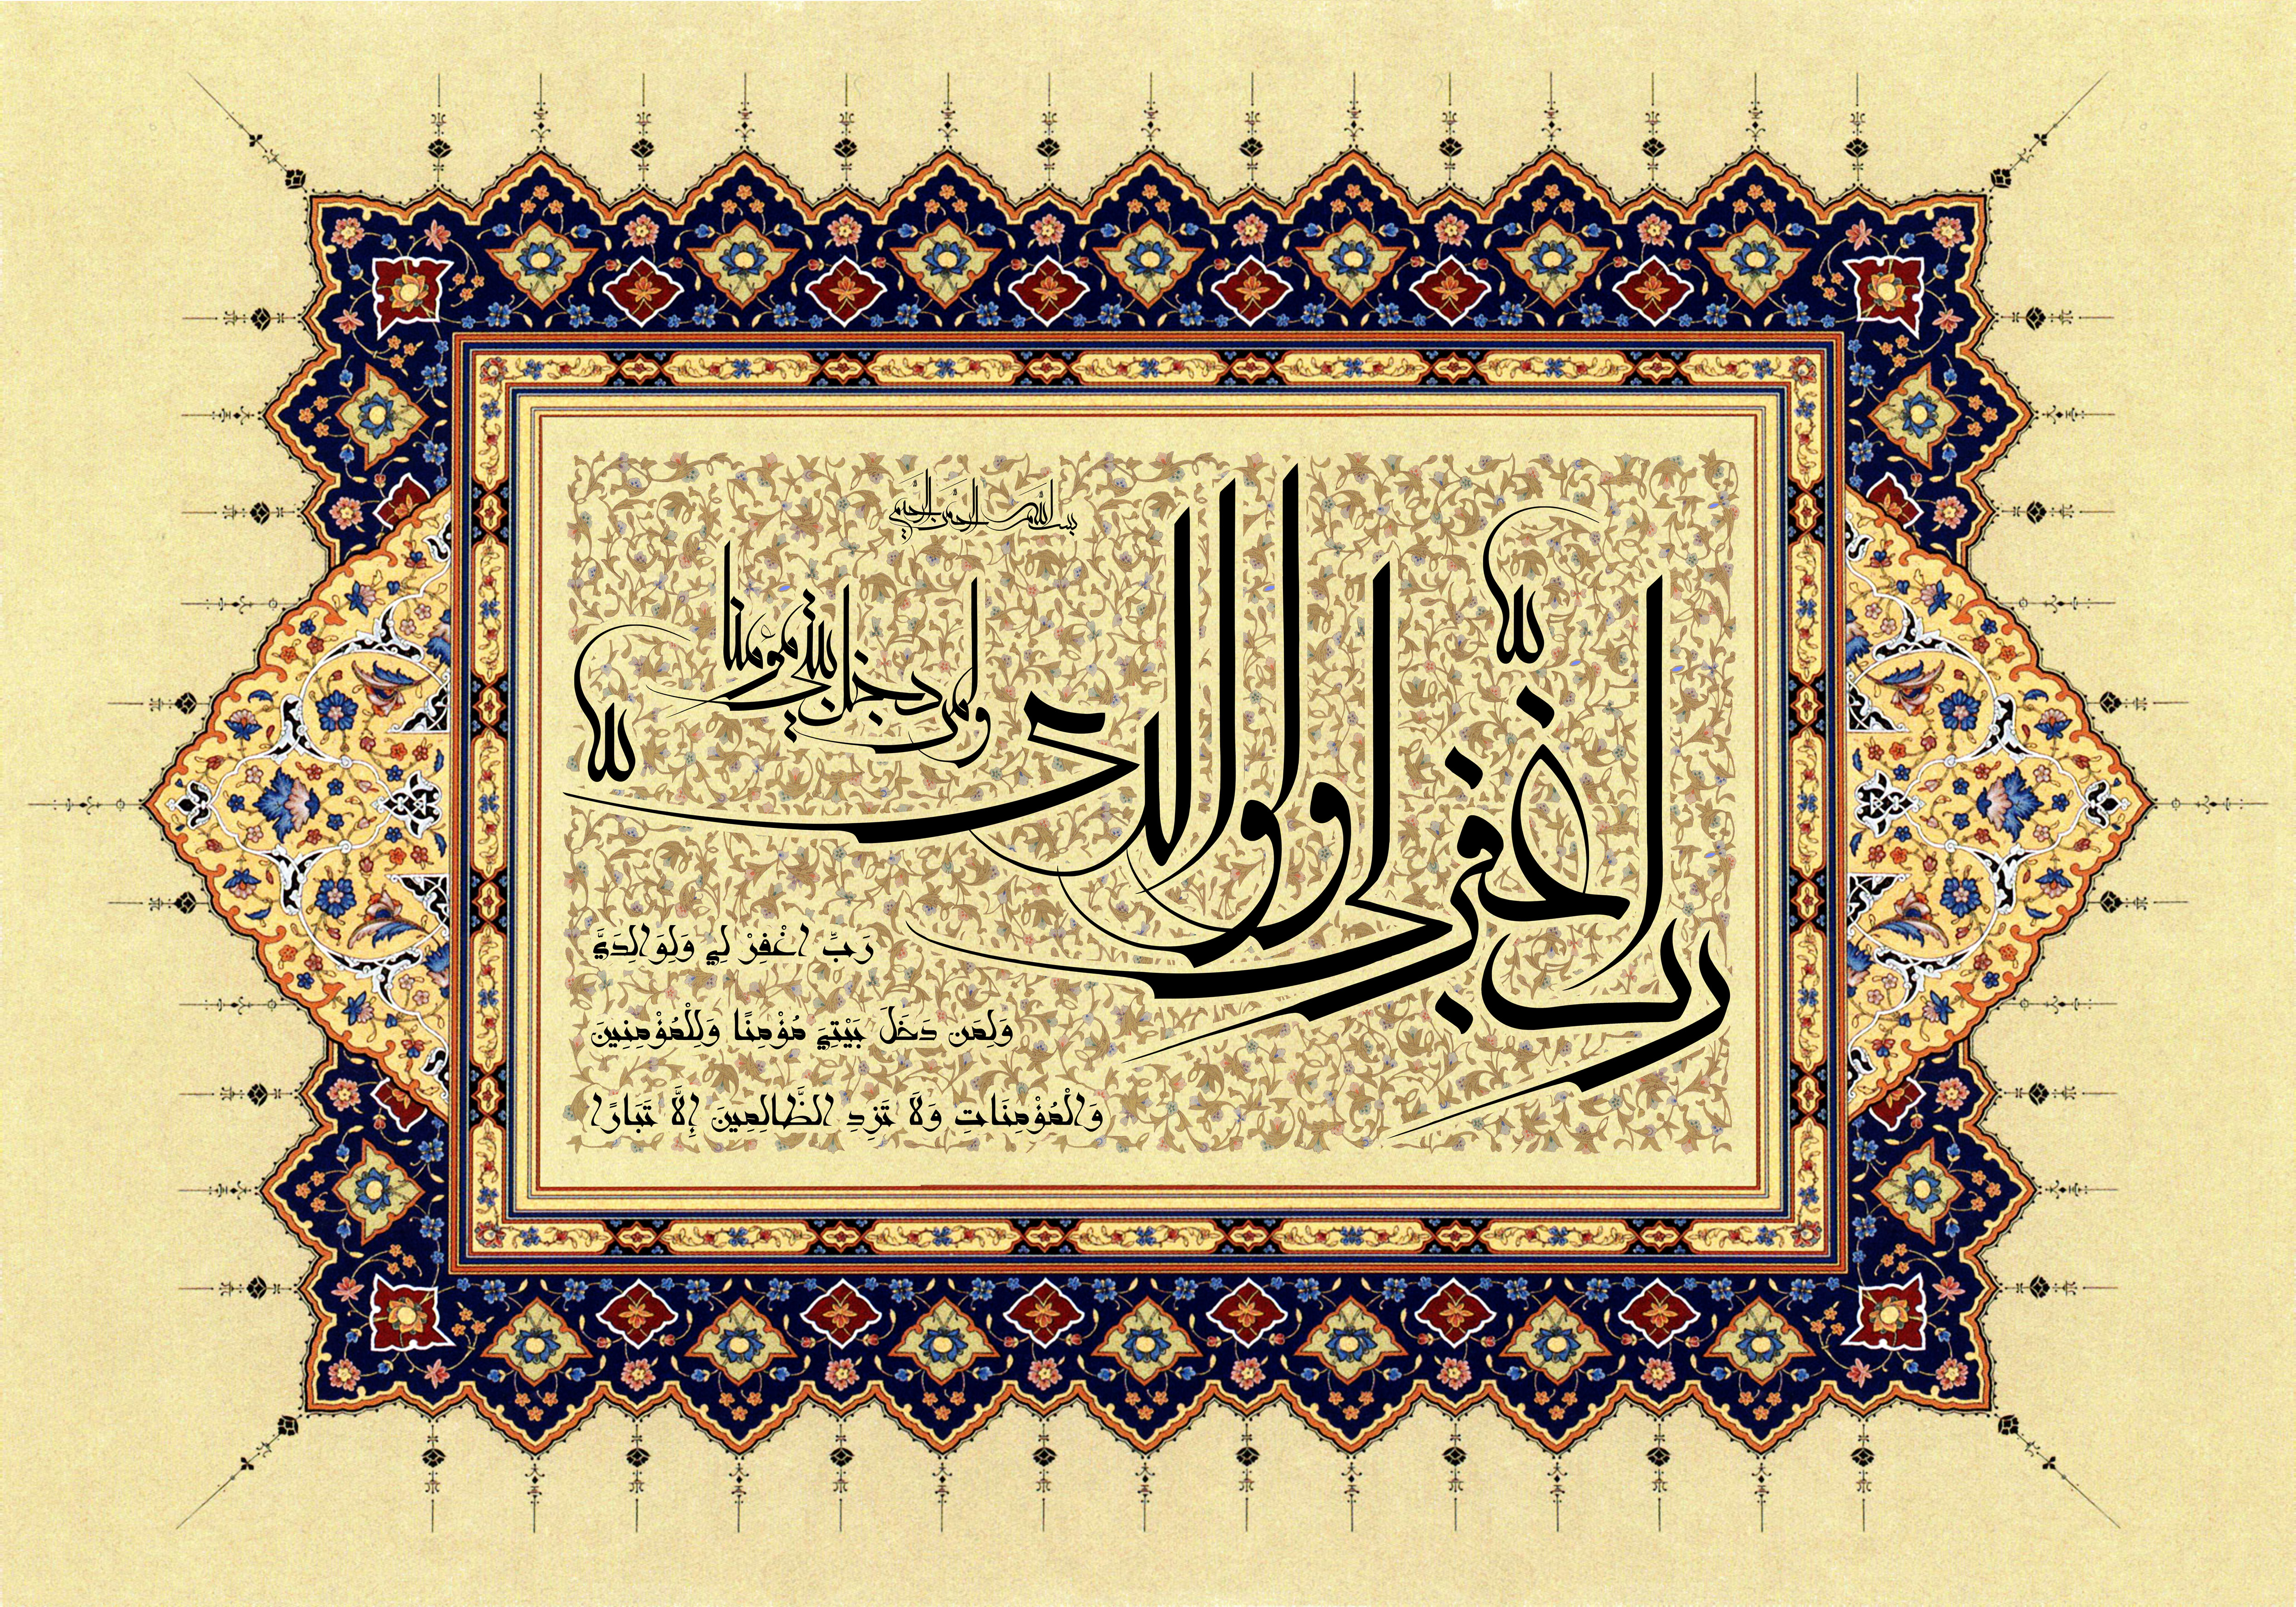 بسم الله الرحمن الرحيم
رب اغفر لي ولوالدي
ولمن دخل بيتي مؤمنا
رَبِّ اغْفِرْ لِي وَلِوَالِدَيَّ
وَلِمَن دَخَلَ بَيْتِيَ مُؤْمِنًا وَلِلْمُؤْمِنِينَ
وَالْمُؤْمِنَاتِ وَلَا تَزِدِ الظَّالِمِينَ إِلَّا تَبَارًا